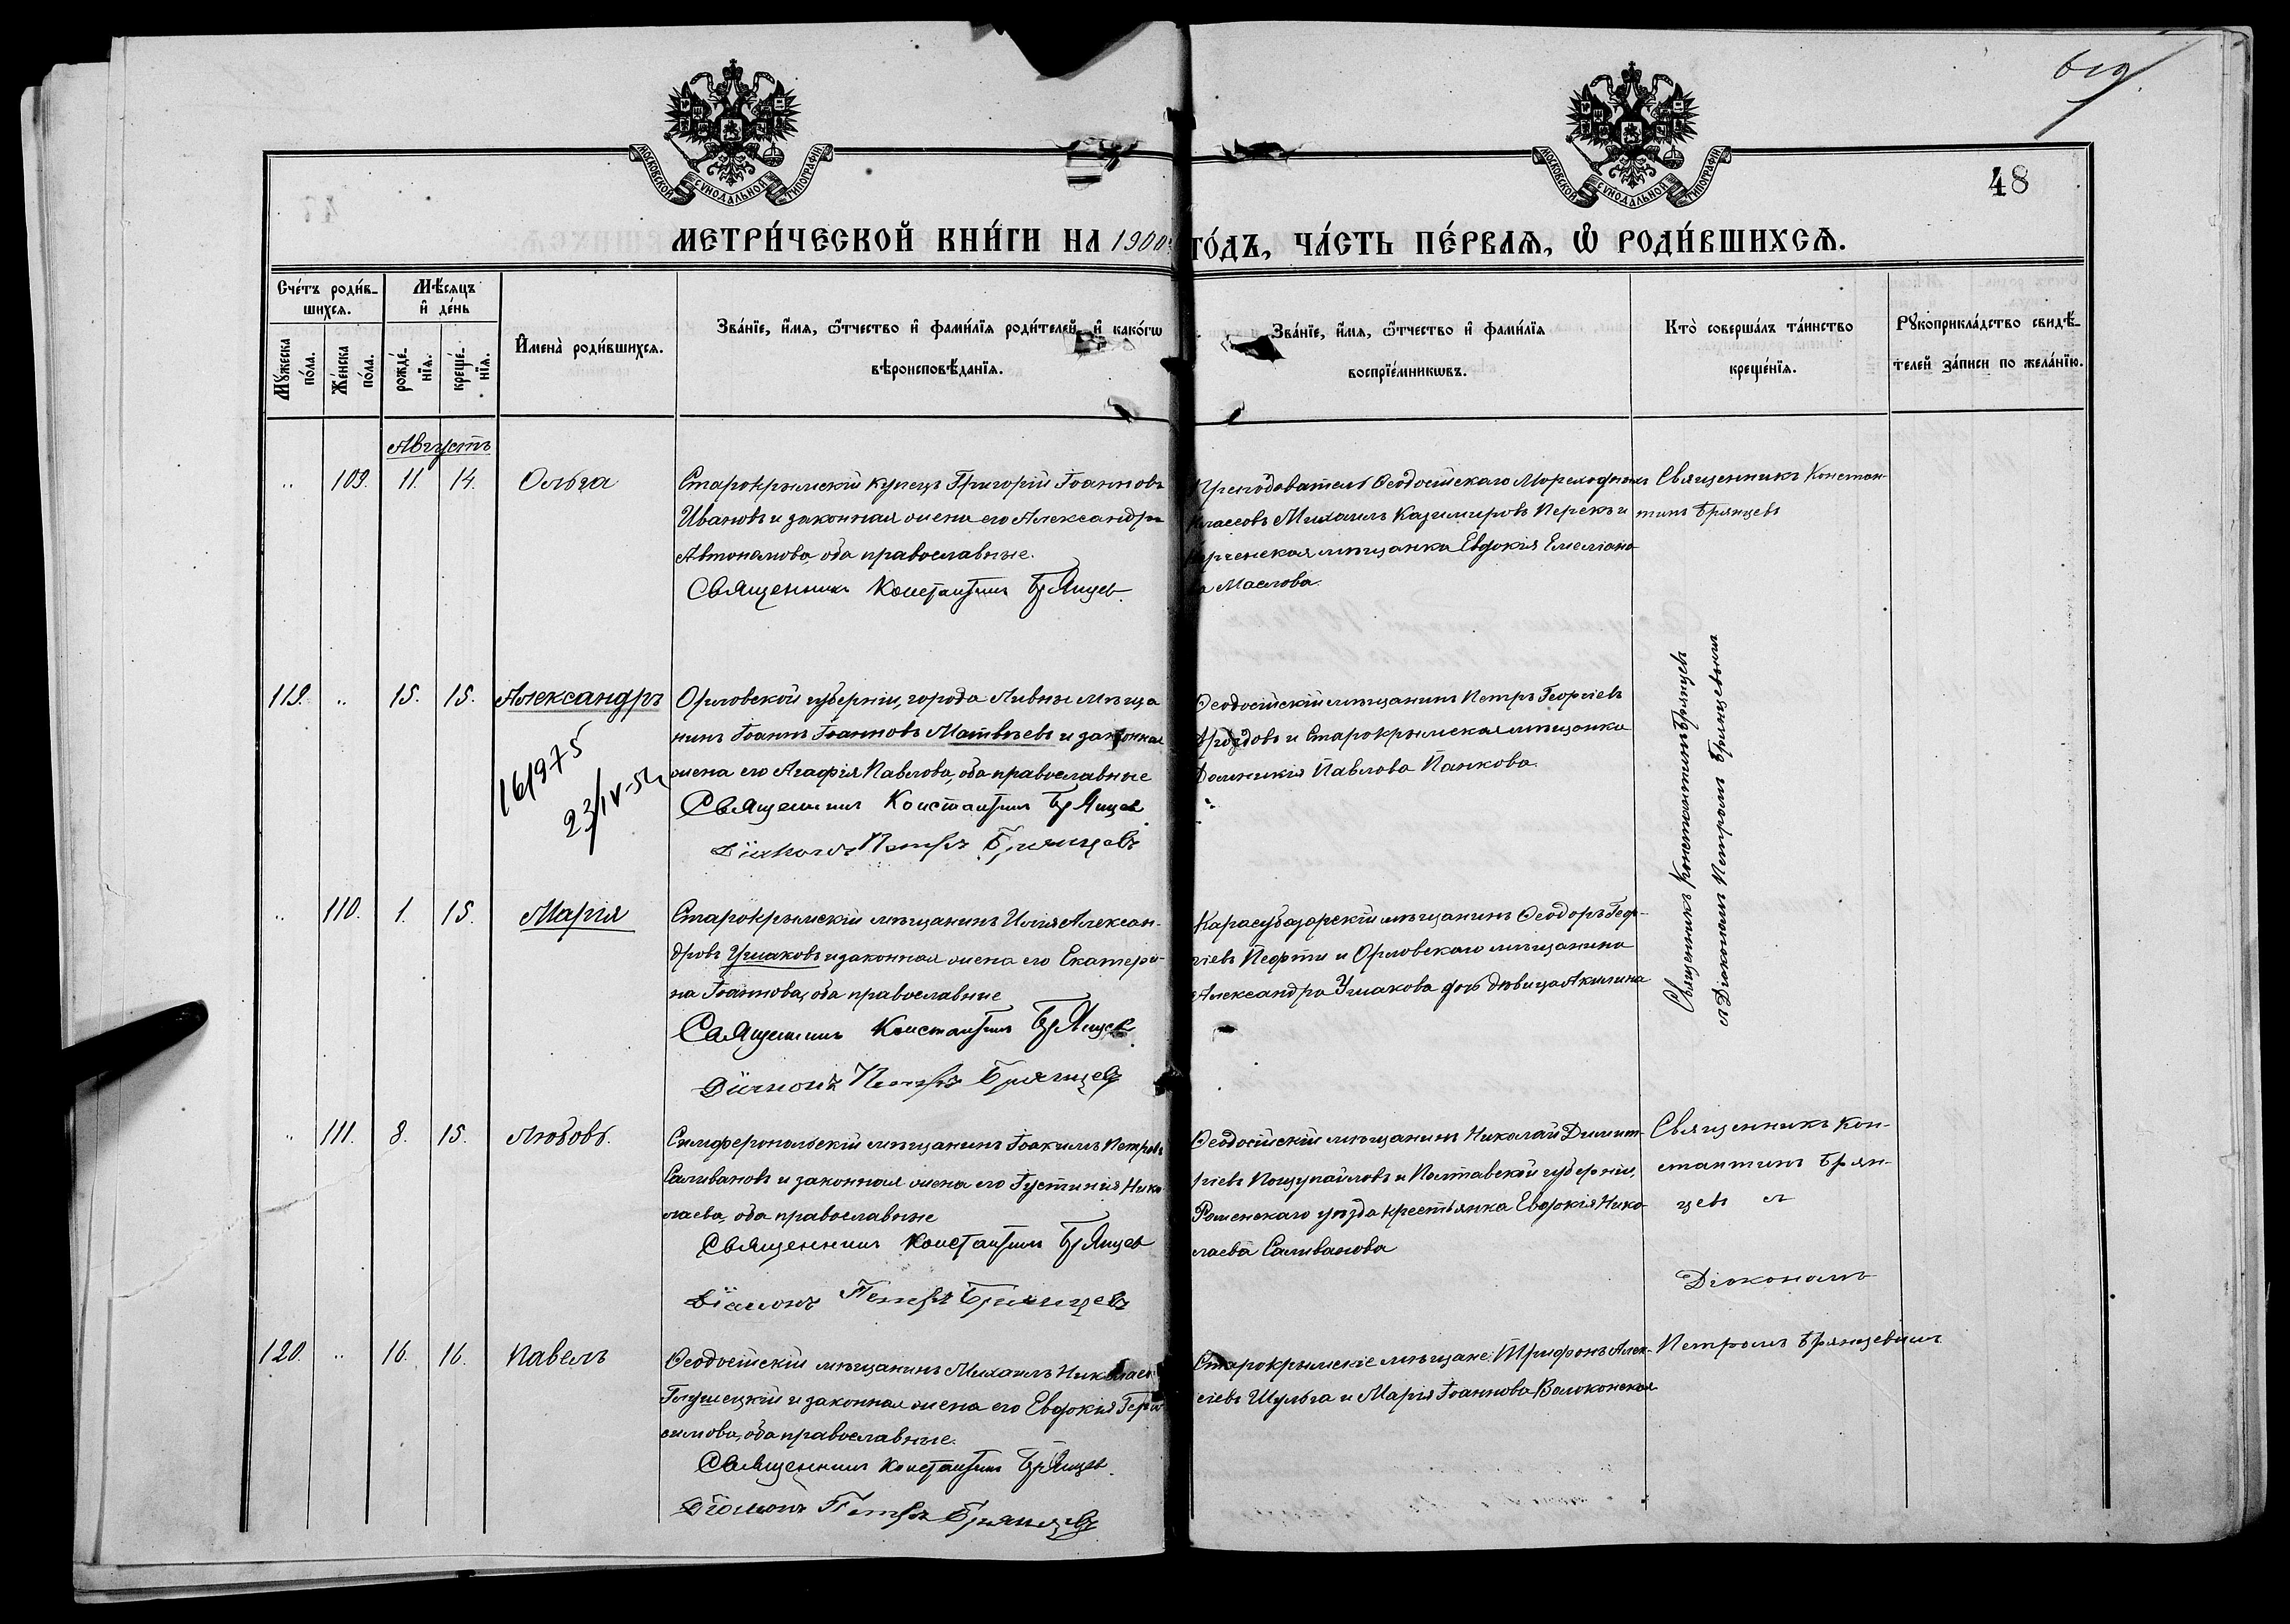 619
48
МОСКОВСКОЙ СѴНОДАЛЬНОЙ ТИПОГРАФІИ
МОСКОВСКОЙ СѴНОДАЛЬНОЙ ТИПОГРАФІИ
МЕТРИ́ЧЕСКОЙ КНИ́ГИ НА 1900 ГО́ДЪ, ЧА́СТЬ ПЕ́РВАЯ, Ѡ РОДИ́ВШИХСЯ.
Сче́тъ роди́в-
шихся.
Мꙋ́жеска по́ла.
Же́нска по́ла.
Мѣ́сяцъ
и де́нь
рожде́-
нїя.
креще́-
нїя.
И҆мена̀ роди́вшихся.
Зва́нїе, и҆́мя, ѻ҆́тчество и҆ фами́лїя роди́телей, и҆ како́гѡ
вѣроисповѣ́данїя.
Зва́нїе, и҆́мя, ѻ҆́тчество и҆ фами́лїя
воспрїе́мникѡвъ.
Кто̀ соверша́лъ та́инство
креще́нїя.
Рꙋкоприкла́дство свидѣ́-
телей за́писи по жела́нїю.
Августъ
" 109. 11. 14. Ольга
Старокрымскій купецъ Григорій Іоанновъ
Ивановъ и законная жена его Александра
Автономова, оба православные.
Священникъ Константинъ Брянцев.
Преподаватель Ѳеодосійскаго Мореходныхъ
классовъ Михаилъ Казимировъ Перекъ и
Керченская мѣщанка Евдокія Емеліано-
ва Маслова.
Священникъ Констан-
тинъ Брянцевъ
119. " 15. 15. Александръ
161975
23/IV-54
Орловской губерніи, города Ливны мѣща
нинъ Іоаннъ Іоанновъ Матвѣевъ и законная
жена его Агафія Павлова, оба православные
Священникъ Константинъ Брянцев.
Діаконъ Петръ Брянцевъ
Ѳеодосійскій мѣщанинъ Петръ Георгіевъ
Дроздовъ и Старокрымская мѣщанка
Домникія Павлова Панкова.
Священникъ Константинъ Брянцевъ
съ Діакономъ Петромъ Брянцевымъ
" 110. 1. 15. Марія
Старокрымскій мѣщанинъ Илія Алексан-
дровъ Ушаковъ и законная жена его Екатери-
на Іоаннова, оба православные
Священникъ Константинъ Брянцев.
Діаконъ Петръ Брянцевъ
Карасубазарскій мѣщанинъ Ѳеодоръ Геор-
гіевъ Нефти и Орловскаго мѣщанина
Александра Ушакова дочь дѣвица Акилина
" 111. 8. 15. Любовь.
Симферопольскій мѣщанинъ Іоакимъ Петровъ
Саливановъ и законная жена его Іустинія Нико-
лаева, оба православные
Священникъ Константинъ Брянцев
Діаконъ Петръ Брянцевъ
Ѳеодосійскій мѣщанинъ Николай Димит-
ріевъ и Полтавской губерніи,
Роменскаго уѣзда крестьянка Евдокія Нико-
лаева Саливанова
Священникъ Кон-
стантинъ Брян-
цевъ съ
Діакономъ
120. " 16. 16. Павелъ
Ѳеодосійскій мѣщанинъ Михаилъ Николаевъ
и законная жена его Евдокія Гера-
симова, оба православные.
Священникъ Константинъ Брянцев.
Діаконъ Петръ Брянцевъ
Старокрымскіе мѣщане: Трифонъ Алек-
сіевъ Шульга и Марія Іоаннова Волоконская
Петромъ Брянцевымъ